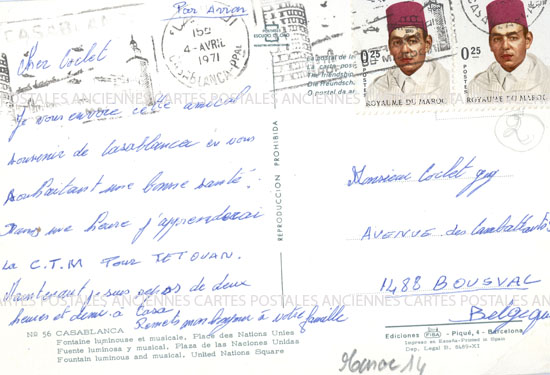 CASABLAN
Par Avion
15H
4-AVRIL
1971
CASABLANCA PPAL
Cher Coclet
Je vous envoie cette amical
souvenir de Casablanca en vous
souhaitant une bonne santé.
Dans une heure j'apprenderai
la C.T.M Pour TETOUAN.
Maintenant je suis repos de deux
heures et demie à Casa
Remets mon bonjour à votre famille
No 56 CASABLANCA
Fontaine lumineuse et musicale, Place des Nations Unies
Fuente luminosa y musical, Plaza de las Naciones Unidas
Fountain luminous and musical, United Nations Square
REPRODUCCION PROHIBIDA
La carte posta
The friendshi
Die freundsch
O postal da a
0.25
POSTES
ROYAUME DU MAROC
0.25
POSTES
ROYAUME DU MAROC
2
Monsieur Coclet Guy
AVENUE des Combattants
1488 BOUSVAL
Belgique
Ediciones FISA - Piqué, 4 - Barcelona
Impreso en España-Printed in Spain
Dep. Legal B. 6485-XI
Maroc 14
POSTALES ANCIENNES CARTES POSTALES ANCIENNES CARTES POSTALES ANCIENNES
POSTALES ANCIENNES CARTES POSTALES ANCIENNES CARTES POSTALES ANCIENNES